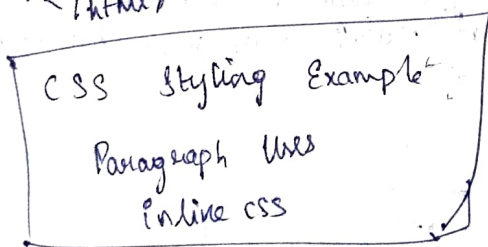 CSS Styling Example
Paragraph Uses
inline css